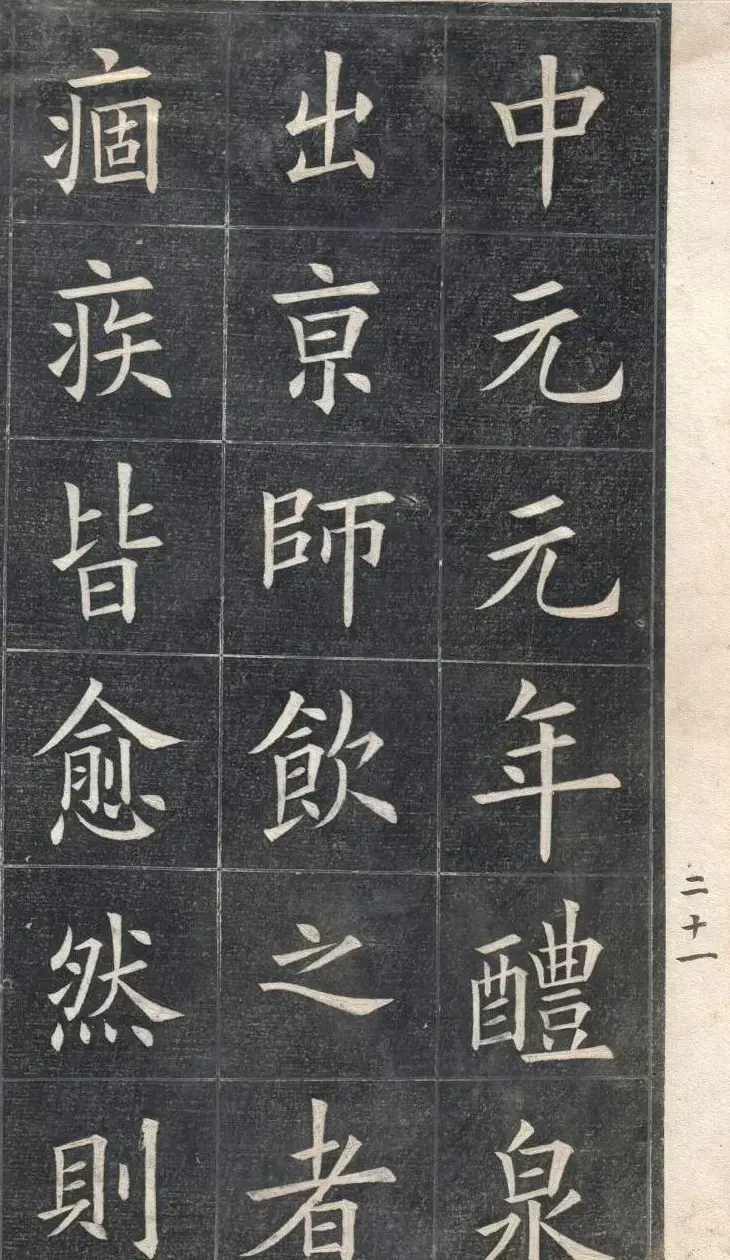 中元元年醴泉
出京師飲之者
痼疾皆愈然則
二十一